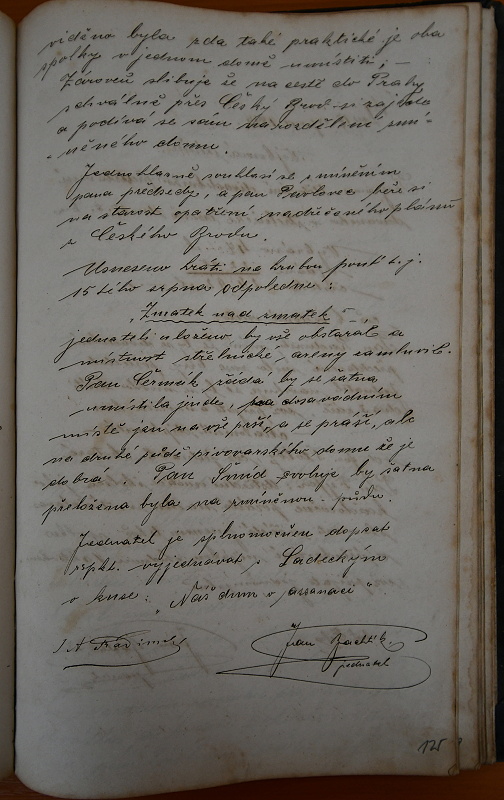 viděno byla zda také praktické je oba
spolky v jednom domě umístiti; –
Zároveň slibuje že na cestě do Prahy
schválně přes Český Brod si zajede
a podívá se sám na rozdělení zmí-
něného domu.
Jednohlasně souhlasí se s míněním
pana předsedy, a pan Pavlovec béře si
na starost opatření nadřečeného plánu
z Českého Brodu.
Usneseno hráti na hrubou pouť t. j.
15tého srpna odpoledne:
„Zmatek nad zmatek" –
jednateli uloženo by vše obstaral a
místnost střelnické areny zamluvil.
Pan Čermák žádá by se šatna
umístila jinde, na dosavadním
místě jen na vše prší, a se práší, ale
na druhé půdě pivovarského domu že je
dobrá. Pan Šmíd svoluje by šatna
přeložena byla na zmíněnou půdu.
Jednatel je splnomocněn dopsat
resp. vyjednávat s Ladeckým
o kuse: „Náš dům v assanaci"
Jan
jednatel
125